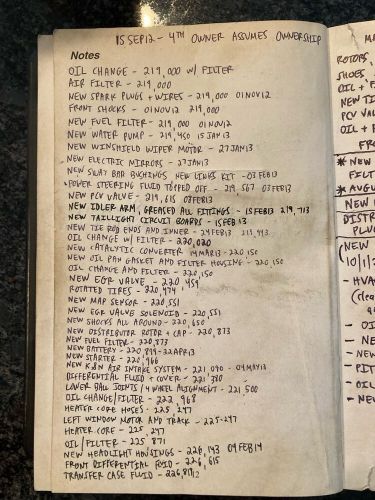 15SEP12 - 4TH OWNER ASSUMES OWNERSHIP
Notes
OIL CHANGE - 219,000 W/ FILTER
AIR FILTER - 219,000
NEW SPARK PLUGS + WIRES - 219,000 01NOV12
FRONT SHOCKS - 01NOV12 219,000
NEW FUEL FILTER - 219,000 01NOV12
NEW WATER PUMP - 219,450 15JAN13
NEW WINSHIELD WIPER MOTOR - 27JAN13
NEW ELECTRIC MIRRORS - 27JAN13
NEW SWAY BAR BUSHINGS NEW LINKS KIT - 03FEB13
POWER STEERING FLUID TOPPED OFF - 219,567 03FEB13
NEW PCV VALVE - 219,615 03FEB13
NEW IDLER ARM, GREASED ALL FITTINGS - 15FEB13 219,713
NEW TAILLIGHT CIRCUIT BOARDS - 15FEB13
NEW TIE ROD ENDS AND INNER - 24FEB13
OIL CHANGE W/ FILTER - 220,020
NEW CATALYTIC CONVERTER 14MAR13 - 220,150
NEW OIL PAN GASKET AND FILTER HOUSING - 220,150
OIL CHANGE AND FILTER - 220,150
NEW EGR VALVE - 220,459
ROTATED TIRES - 220,474
NEW MAP SENSOR - 220,551
NEW EGR VALVE SOLENOID - 220,551
NEW SHOCKS ALL AROUND - 220,650
NEW DISTRIBUTOR ROTOR + CAP - 220,873
NEW FUEL FILTER - 220,873
NEW BATTERY - 220,899 - 22APR13
NEW STARTER - 220,966
NEW K&N AIR INTAKE SYSTEM - 221,090 - 04MAY13
DIFFERENTIAL FLUID + COVER - 221,380
LOWER BALL JOINTS / 4 WHEEL ALIGNMENT - 221,500
OIL CHANGE/FILTER - 222,968
HEATER CORE HOSES - 225,247
LEFT WINDOW MOTOR AND TRACK - 225,247
HEATER CORE - 225,247
OIL/FILTER - 225,871
NEW HEADLIGHT HOUSINGS - 226,143 09FEB14
FRONT DIFFERENTIAL FLUID - 226,615
TRANSFER CASE FLUID -
ROTORS,
SHOES
OIL +
NEW TI
PCV VAL
OIL + F
FR
* NEW
FILT
* AUGU
NEW
DISTR
PLU
(NEW
(10/1/
- HVA
(clea
- OI
- NE
- NEW
- PIT
- OIL
- NEW